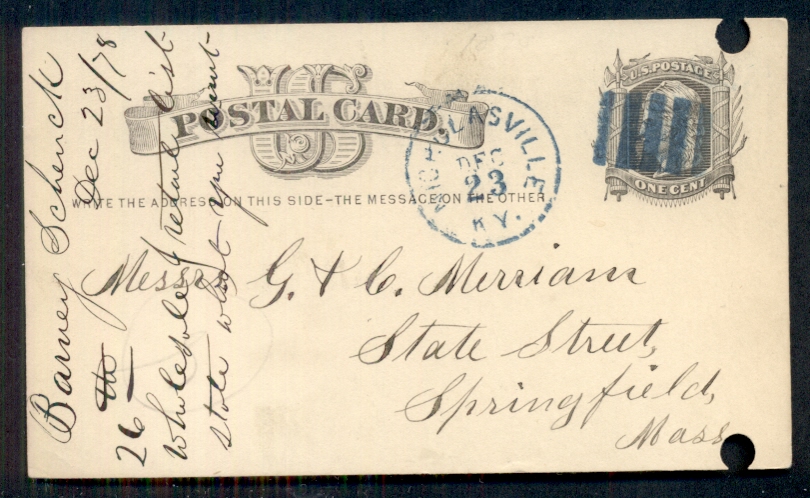 POSTAL CARD
WRITE THE ADDRESS ON THIS SIDE-THE MESSAGE ON THE OTHER
U.S. POSTAGE
ONE CENT
NICHOLASVILLE
DEC
23
KY.
Messrs G. & C. Merriam
State Street,
Springfield,
Mass
Barney Schenck
Dec 23/78
26
Wholesale & retail list
state what you want